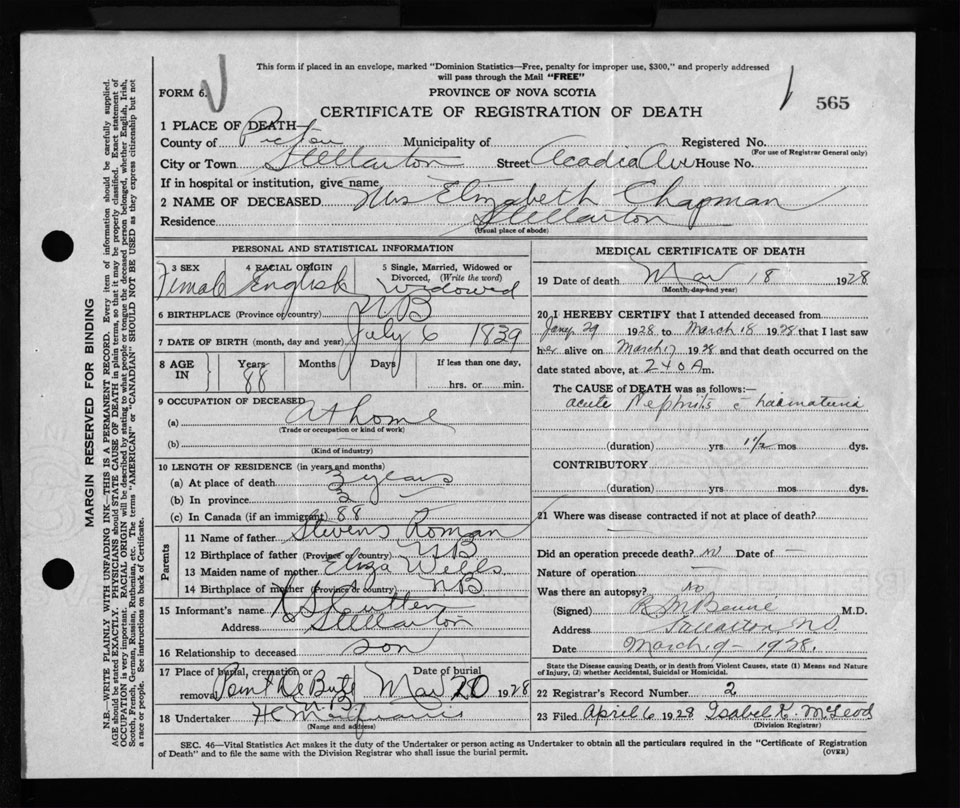 This form if placed in an envelope, marked "Dominion Statistics—Free, penalty for improper use, $300," and properly addressed
will pass through the Mail "FREE"
FORM 6.
PROVINCE OF NOVA SCOTIA
565
CERTIFICATE OF REGISTRATION OF DEATH
1 PLACE OF DEATH—
County of Pictou Municipality of Registered No.
(For use of Registrar General only)
City or Town Stellarton Street Acadia Ave House No.
If in hospital or institution, give name
2 NAME OF DECEASED Mrs Elizabeth Chapman
Residence Stellarton
(Usual place of abode)
PERSONAL AND STATISTICAL INFORMATION
3 SEX 4 RACIAL ORIGIN 5 Single, Married, Widowed or
Divorced. (Write the word)
Female English Widowed
6 BIRTHPLACE (Province or country) N B
7 DATE OF BIRTH (month, day and year) July 6 1839
8 AGE IN Years Months Days If less than one day,
88 hrs. or min.
9 OCCUPATION OF DECEASED
(a) At home
(Trade or occupation or kind of work)
(b)
(Kind of industry)
10 LENGTH OF RESIDENCE (in years and months)
(a) At place of death 3 years
(b) In province 3
(c) In Canada (if an immigrant) 88
Parents
11 Name of father Stevens Roman
12 Birthplace of father (Province or country) N B
13 Maiden name of mother Eliza Wells
14 Birthplace of mother (Province or country) N B
15 Informant's name
Address Stellarton
16 Relationship to deceased son
17 Place of burial, cremation or Date of burial
removal Point de Bute N B Mar 20 1928
18 Undertaker
(Name and address)
MEDICAL CERTIFICATE OF DEATH
19 Date of death Mar 18 1928
(Month, day and year)
20 I HEREBY CERTIFY that I attended deceased from
Jany 29 1928 to March 18 1928 that I last saw
her alive on March 17 1928 and that death occurred on the
date stated above, at 2 40 A m.
The CAUSE of DEATH was as follows:—
acute Nephritis c haematuria
(duration) yrs 1 1/2 mos dys.
CONTRIBUTORY
(duration) yrs. mos dys.
21 Where was disease contracted if not at place of death?
Did an operation precede death? No Date of —
Nature of operation —
Was there an autopsy? No
(Signed) M.D.
Address Stellarton, N S
Date March 9 - 1928.
State the Disease causing Death, or in death from Violent Causes, state (1) Means and Nature
of Injury, (2) whether Accidental, Suicidal or Homicidal.
22 Registrar's Record Number 2
23 Filed April 6 1928 Isabel K. McLeod
(Division Registrar)
SEC. 46—Vital Statistics Act makes it the duty of the Undertaker or person acting as Undertaker to obtain all the particulars required in the "Certificate of Registration
of Death" and to file the same with the Division Registrar who shall issue the burial permit. (OVER)
MARGIN RESERVED FOR BINDING
N.B.—WRITE PLAINLY WITH UNFADING INK—THIS IS A PERMANENT RECORD. Every item of information should be carefully supplied.
AGE should be stated EXACTLY. PHYSICIANS should STATE CAUSE OF DEATH in plain terms, so that it may be properly classified. Exact statement of
OCCUPATION is very important. RACIAL ORIGIN will be described by stating to what people or tongue the deceased person belonged, whether English, Irish,
Scotch, French, German, Russian, Ruthenian, etc. The terms "AMERICAN" or "CANADIAN" SHOULD NOT BE USED as they express citizenship but not
a race or people. See instructions on back of Certificate.